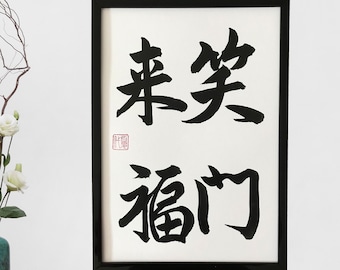 笑门
来福